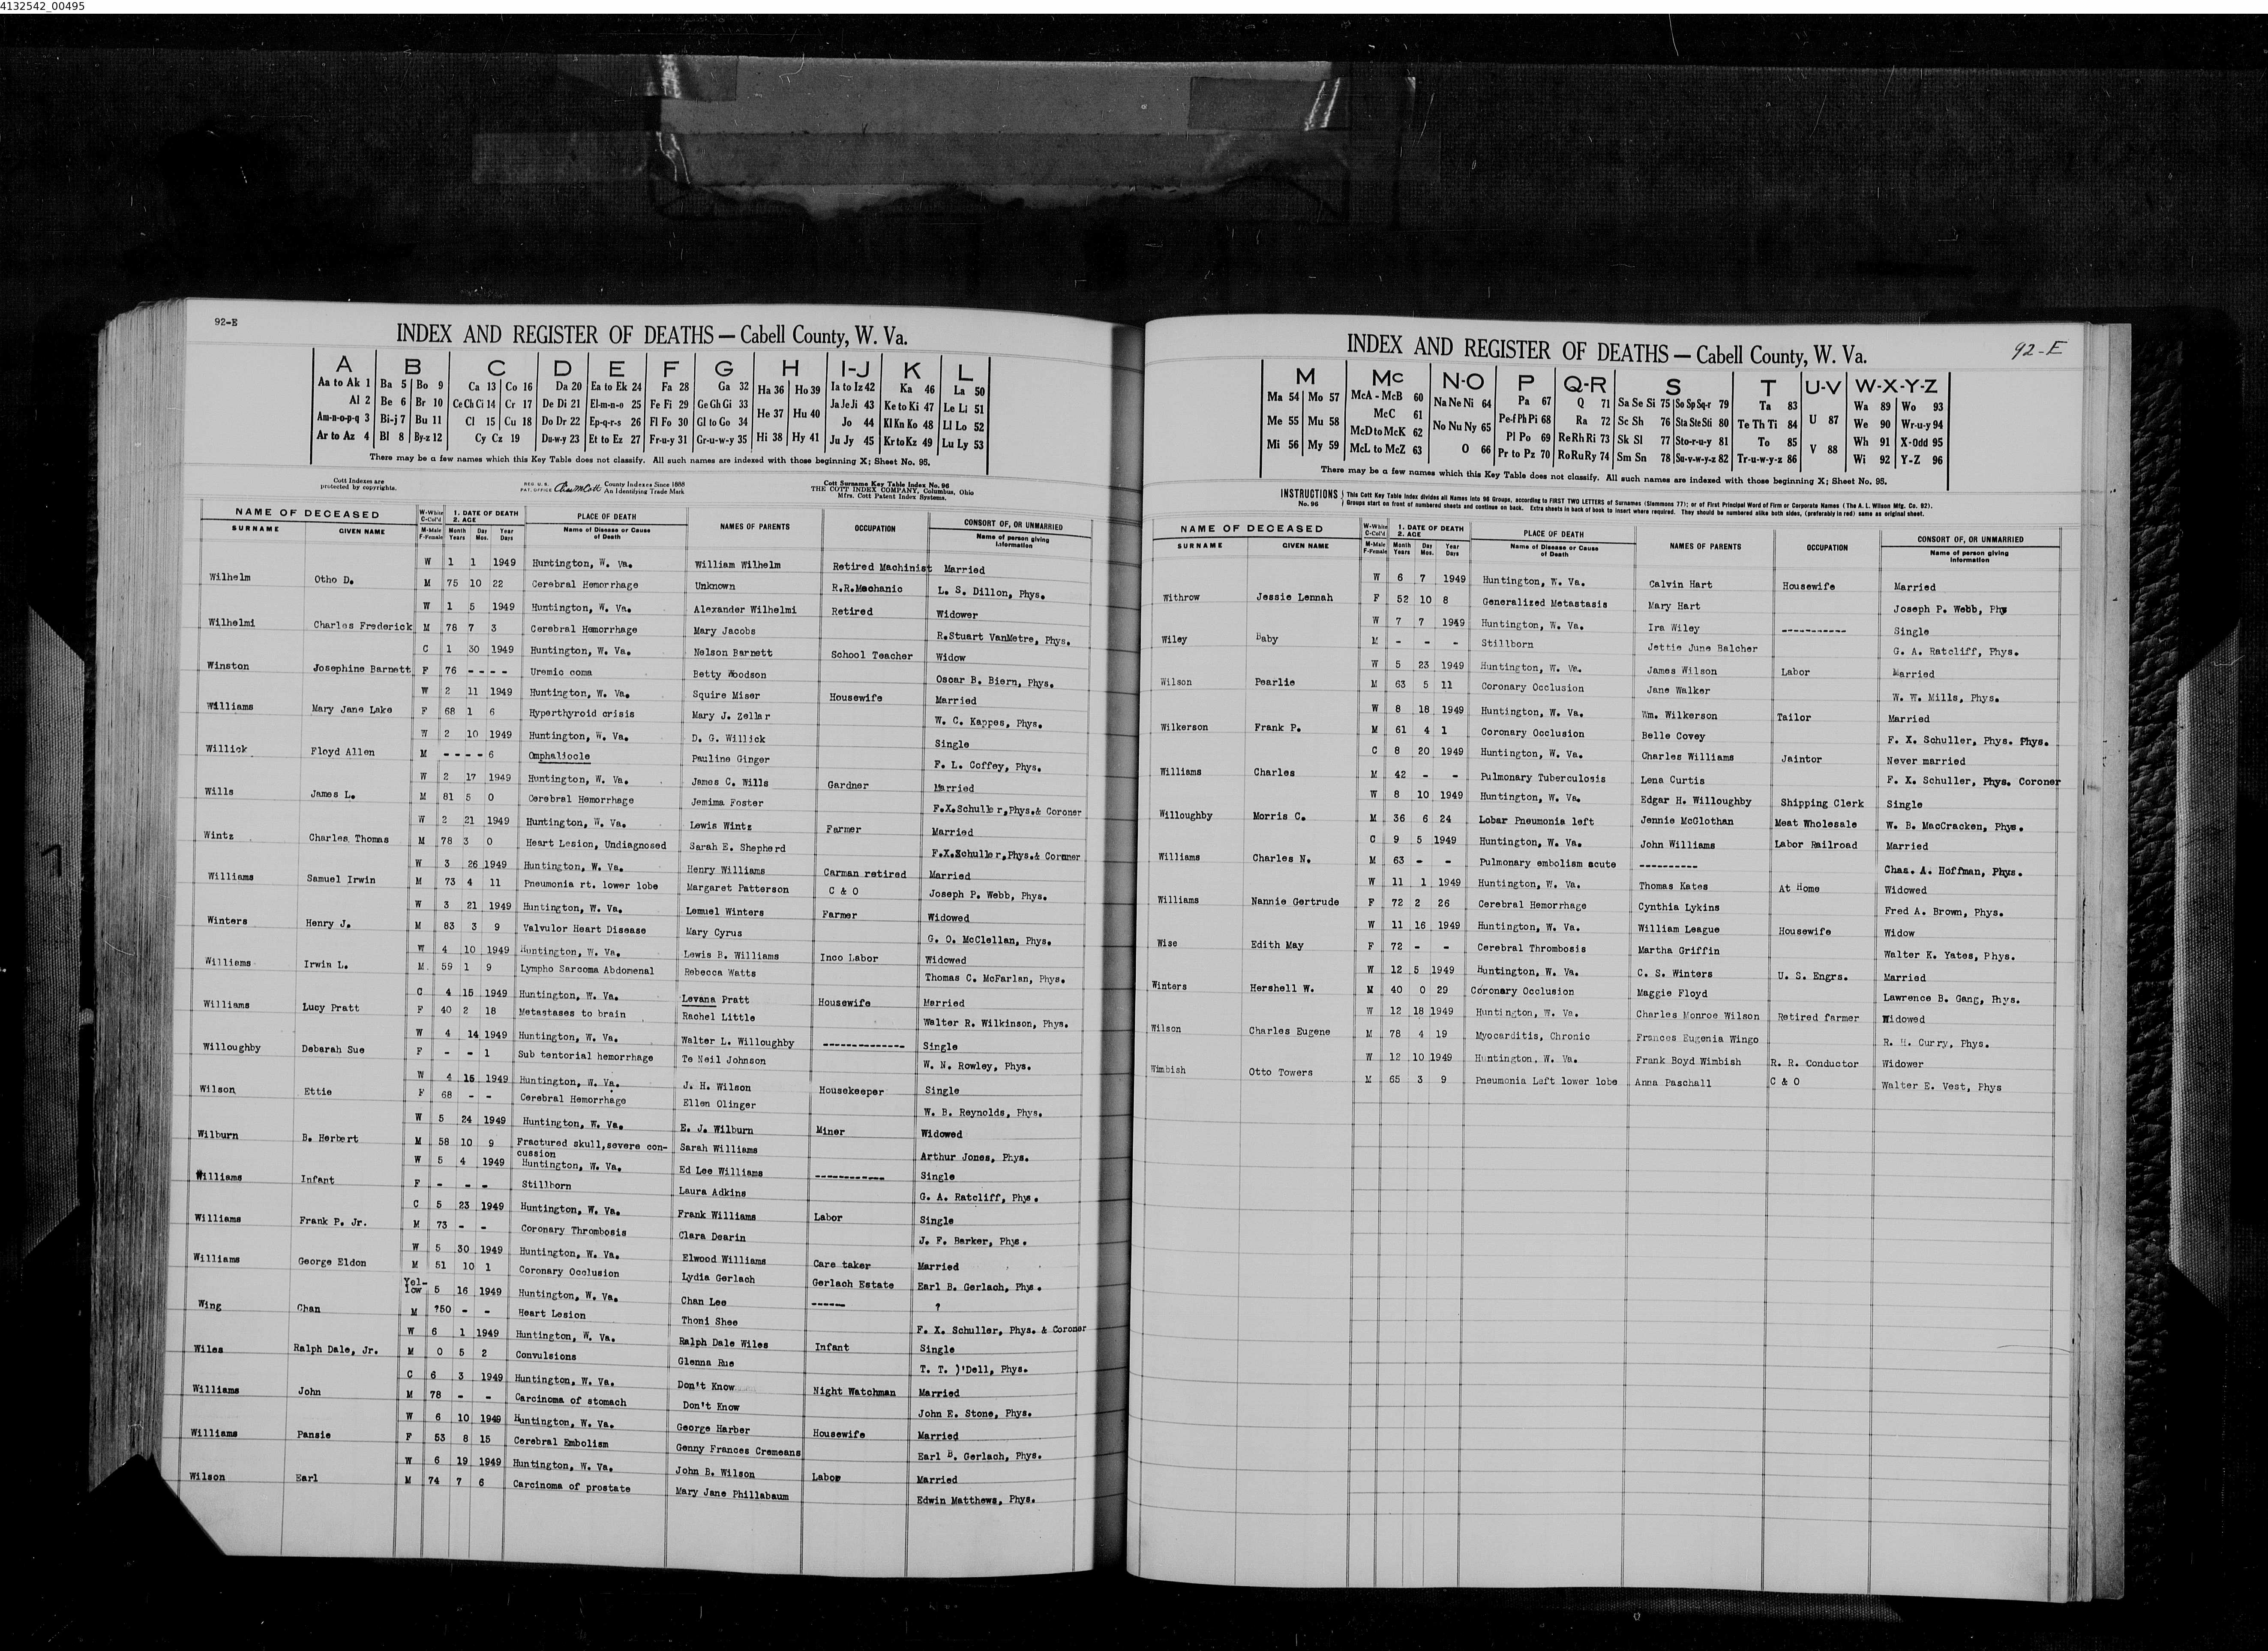 4132542_00495
92-E
INDEX AND REGISTER OF DEATHS — Cabell County, W. Va.
A B C D E F G H I-J K L
Aa to Ak 1 Ba 5 Bo 9 Ca 13 Co 16 Da 20 Ea to Ek 24 Fa 28 Ga 32 Ha 36 Ho 39 Ia to Iz 42 Ka 46 La 50
Al 2 Be 6 Br 10 Ce Ch Ci 14 Cr 17 De Di 21 El-m-n-o 25 Fe Fi 29 Ge Gh Gi 33 He 37 Hu 40 Ja Je Ji 43 Ke to Ki 47 Le Li 51
Am-n-o-p-q 3 Bi-j 7 Bu 11 Cl 15 Cu 18 Do Dr 22 Ep-q-r-s 26 Fl Fo 30 Gl to Go 34 Jo 44 Kl Kn Ko 48 Ll Lo 52
Ar to Az 4 Bl 8 By-z 12 Cy Cz 19 Du-w-y 23 Et to Ez 27 Fr-u-y 31 Gr-u-w-y 35 Hi 38 Hy 41 Ju Jy 45 Kr to Kz 49 Lu Ly 53
There may be a few names which this Key Table does not classify. All such names are indexed with those beginning X; Sheet No. 95.
Cott Indexes are protected by copyrights.
REG. U.S. PAT. OFFICE County Indexes Since 1888 An Identifying Trade Mark
Cott Surname Key Table Index No. 96
THE COTT INDEX COMPANY, Columbus, Ohio
Mfrs. Cott Patent Index Systems.
NAME OF DECEASED W-White C-Col'd 1. DATE OF DEATH 2. AGE PLACE OF DEATH NAMES OF PARENTS OCCUPATION CONSORT OF, OR UNMARRIED
SURNAME GIVEN NAME M-Male F-Female Month Years Day Mos. Year Days Name of Disease or Cause of Death Name of person giving Information
W 1 1 1949 Huntington, W. Va. William Wilhelm Retired Machinist Married
Wilhelm Otho D. M 75 10 22 Cerebral Hemorrhage Unknown R.R.Mechanic L. S. Dillon, Phys.
W 1 5 1949 Huntington, W. Va. Alexander Wilhelmi Retired Widower
Wilhelmi Charles Frederick M 78 7 3 Cerebral Hemorrhage Mary Jacobs R.Stuart VanMetre, Phys.
C 1 30 1949 Huntington, W. Va. Nelson Barnett School Teacher Widow
Winston Josephine Barnett F 76 - - - - Uremic coma Betty Woodson Oscar B. Biern, Phys.
W 2 11 1949 Huntington, W. Va. Squire Miser Housewife Married
Williams Mary Jane Lake F 68 1 6 Hyperthyroid crisis Mary J. Zellar W. C. Kappes, Phys.
W 2 10 1949 Huntington, W. Va. D. G. Willick Single
Willick Floyd Allen M - - - - 6 Omphaliocle Pauline Ginger F. L. Coffey, Phys.
W 2 17 1949 Huntington, W. Va. James C. Wills Gardner Married
Wills James L. M 81 5 0 Cerebral Hemorrhage Jemima Foster F.X.Schuller,Phys.& Coroner
W 2 21 1949 Huntington, W. Va. Lewis Wintz Farmer Married
Wintz Charles Thomas M 78 3 0 Heart Lesion, Undiagnosed Sarah E. Shepherd F.X.Schuller,Phys.& Coroner
W 3 26 1949 Huntington, W. Va. Henry Williams Carman retired Married
Williams Samuel Irwin M 73 4 11 Pneumonia rt. lower lobe Margaret Patterson C & O Joseph P. Webb, Phys.
W 3 21 1949 Huntington, W. Va. Lemuel Winters Farmer Widowed
Winters Henry J. M 83 3 9 Valvulor Heart Disease Mary Cyrus G. O. McClellan, Phys.
W 4 10 1949 Huntington, W. Va. Lewis B. Williams Inco Labor Widowed
Williams Irwin L. M 59 1 9 Lympho Sarcoma Abdomenal Rebecca Watts Thomas C. McFarlan, Phys.
C 4 15 1949 Huntington, W. Va. Levana Pratt Housewife Married
Williams Lucy Pratt F 40 2 18 Metastases to brain Rachel Little Walter R. Wilkinson, Phys.
W 4 14 1949 Huntington, W. Va. Walter L. Willoughby -------------- Single
Willoughby Debarah Sue F - - 1 Sub tentorial hemorrhage Te Neil Johnson W. N. Rowley, Phys.
W 4 15 1949 Huntington, W. Va. J. H. Wilson Housekeeper Single
Wilson Ettie F 68 - - Cerebral Hemorrhage Ellen Olinger W. B. Reynolds, Phys.
W 5 24 1949 Huntington, W. Va. E. J. Wilburn Miner Widowed
Wilburn B. Herbert M 58 10 9 Fractured skull,severe con- Sarah Williams Arthur Jones, Phys.
cussion
W 5 4 1949 Huntington, W. Va. Ed Lee Williams ------------ Single
Williams Infant F - - - Stillborn Laura Adkins G. A. Ratcliff, Phys.
C 5 23 1949 Huntington, W. Va. Frank Williams Labor Single
Williams Frank P. Jr. M 73 - - Coronary Thrombosis Clara Dearin J. F. Barker, Phys.
W 5 30 1949 Huntington, W. Va. Elwood Williams Care taker Married
Williams George Eldon M 51 10 1 Coronary Occlusion Lydia Gerlach Gerlach Estate Earl B. Gerlach, Phys.
Yel-
low 5 16 1949 Huntington, W. Va. Chan Lee ------ ?
Wing Chan M ?50 - - Heart Lesion Thoni Shee F. X. Schuller, Phys. & Coroner
W 6 1 1949 Huntington, W. Va. Ralph Dale Wiles Infant Single
Wiles Ralph Dale, Jr. M 0 5 2 Convulsions Glenna Rue T. T. )'Dell, Phys.
C 6 3 1949 Huntington, W. Va. Don't Know Night Watchman Married
Williams John M 78 - - Carcinoma of stomach Don't Know John E. Stone, Phys.
W 6 10 1949 Huntington, W. Va. George Harber Housewife Married
Williams Pansie F 53 8 15 Cerebral Embolism Genny Frances Cremeans Earl B. Gerlach, Phys.
W 6 19 1949 Huntington, W. Va. John B. Wilson Labor Married
Wilson Earl M 74 7 6 Carcinoma of prostate Mary Jane Phillabaum Edwin Matthews, Phys.
92-E
INDEX AND REGISTER OF DEATHS — Cabell County, W. Va.
M Mc N-O P Q-R S T U-V W-X-Y-Z
Ma 54 Mo 57 McA - McB 60 Na Ne Ni 64 Pa 67 Q 71 Sa Se Si 75 So Sp Sq-r 79 Ta 83 U 87 Wa 89 Wo 93
Me 55 Mu 58 McC 61 No Nu Ny 65 Pe-f Ph Pi 68 Ra 72 Sc Sh 76 Sta Ste Sti 80 Te Th Ti 84 We 90 Wr-u-y 94
McD to McK 62 Pl Po 69 Re Rh Ri 73 Sk Sl 77 Sto-r-u-y 81 To 85 V 88 Wh 91 X-Odd 95
Mi 56 My 59 McL to McZ 63 O 66 Pr to Pz 70 Ro Ru Ry 74 Sm Sn 78 Su-v-w-y-z 82 Tr-u-w-y-z 86 Wi 92 Y-Z 96
There may be a few names which this Key Table does not classify. All such names are indexed with those beginning X; Sheet No. 95.
INSTRUCTIONS No. 96 This Cott Key Table Index divides all Names into 96 Groups, according to FIRST TWO LETTERS of Surnames (Slemmons 77); or of First Principal Word of Firm or Corporate Names (The A. L. Wilson Mfg. Co. 92).
Groups start on front of numbered sheets and continue on back. Extra sheets in back of book to insert where required. They should be numbered alike both sides, (preferably in red) same as original sheet.
NAME OF DECEASED W-White C-Col'd 1. DATE OF DEATH 2. AGE PLACE OF DEATH NAMES OF PARENTS OCCUPATION CONSORT OF, OR UNMARRIED
SURNAME GIVEN NAME M-Male F-Female Month Years Day Mos. Year Days Name of Disease or Cause of Death Name of person giving Information
W 6 7 1949 Huntington, W. Va. Calvin Hart Housewife Married
Withrow Jessie Lennah F 52 10 8 Generalized Metastasis Mary Hart Joseph P. Webb, Phy
W 7 7 1949 Huntington, W. Va. Ira Wiley ----------- Single
Wiley Baby M - - - Stillborn Jettie June Balcher G. A. Ratcliff, Phys.
W 5 23 1949 Huntington, W. Va. James Wilson Labor Married
Wilson Pearlie M 63 5 11 Coronary Occlusion Jane Walker W. W. Mills, Phys.
W 8 18 1949 Huntington, W. Va. Wm. Wilkerson Tailor Married
Wilkerson Frank P. M 61 4 1 Coronary Occlusion Belle Covey F. X. Schuller, Phys. Phys.
C 8 20 1949 Huntington, W. Va. Charles Williams Jaintor Never married
Williams Charles M 42 - - Pulmonary Tuberculosis Lena Curtis F. X. Schuller, Phys. Coroner
W 8 10 1949 Huntington, W. Va. Edgar H. Willoughby Shipping Clerk Single
Willoughby Morris C. M 36 6 24 Lobar Pneumonia left Jennie McGlothan Meat Wholesale W. B. MacCracken, Phys.
C 9 5 1949 Huntington, W. Va. John Williams Labor Railroad Married
Williams Charles N. M 63 - - Pulmonary embolism acute ---------- Chas. A. Hoffman, Phys.
W 11 1 1949 Huntington, W. Va. Thomas Kates At Home Widowed
Williams Nannie Gertrude F 72 2 26 Cerebral Hemorrhage Cynthia Lykins Fred A. Brown, Phys.
W 11 16 1949 Huntington, W. Va. William League Housewife Widow
Wise Edith May F 72 - - Cerebral Thrombosis Martha Griffin Walter K. Yates, Phys.
W 12 5 1949 Huntington, W. Va. C. S. Winters U. S. Engrs. Married
Winters Hershell W. M 40 0 29 Coronary Occlusion Maggie Floyd Lawrence B. Gang, Phys.
W 12 18 1949 Huntington, W. Va. Charles Monroe Wilson Retired farmer Widowed
Wilson Charles Eugene M 78 4 19 Myocarditis, Chronic Frances Eugenia Wingo R. H. Curry, Phys.
W 12 10 1949 Huntington, W. Va. Frank Boyd Wimbish R. R. Conductor Widower
Wimbish Otto Towers M 65 3 9 Pneumonia Left lower lobe Anna Paschall C & O Walter E. Vest, Phys